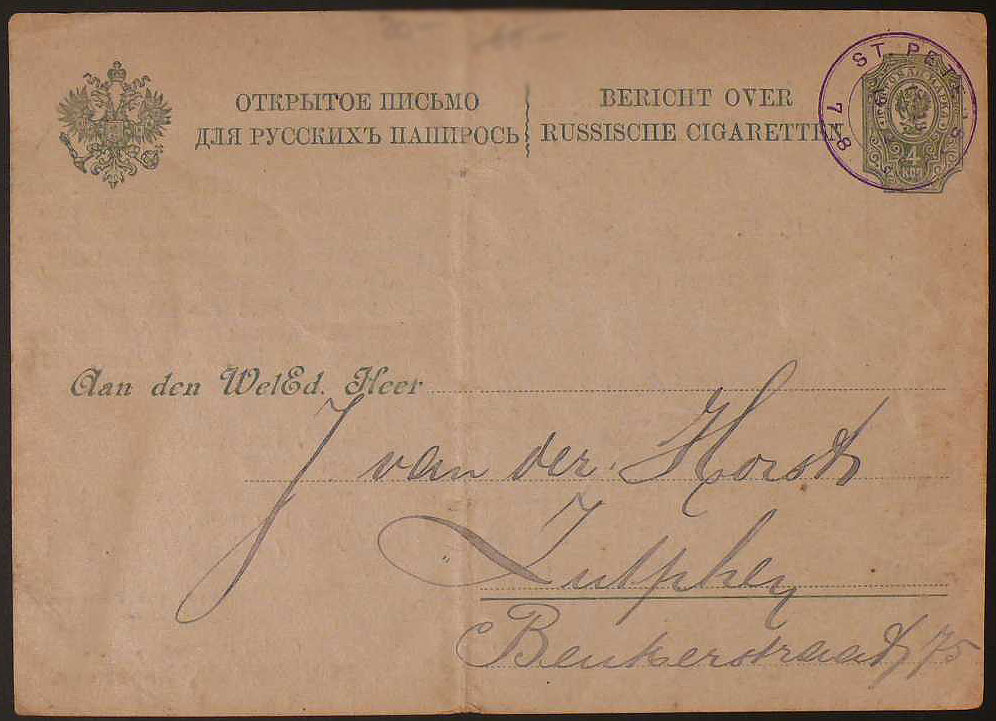 ОТКРЫТОЕ ПИСЬМО
ДЛЯ РУССКИХЪ ПАПИРОСЬ
BERICHT OVER
RUSSISCHE CIGARETTEN
ST. PET
7 8
4
Aan den WelEd. Heer
J van der Horst
Zutphen
Beukerstraat 75